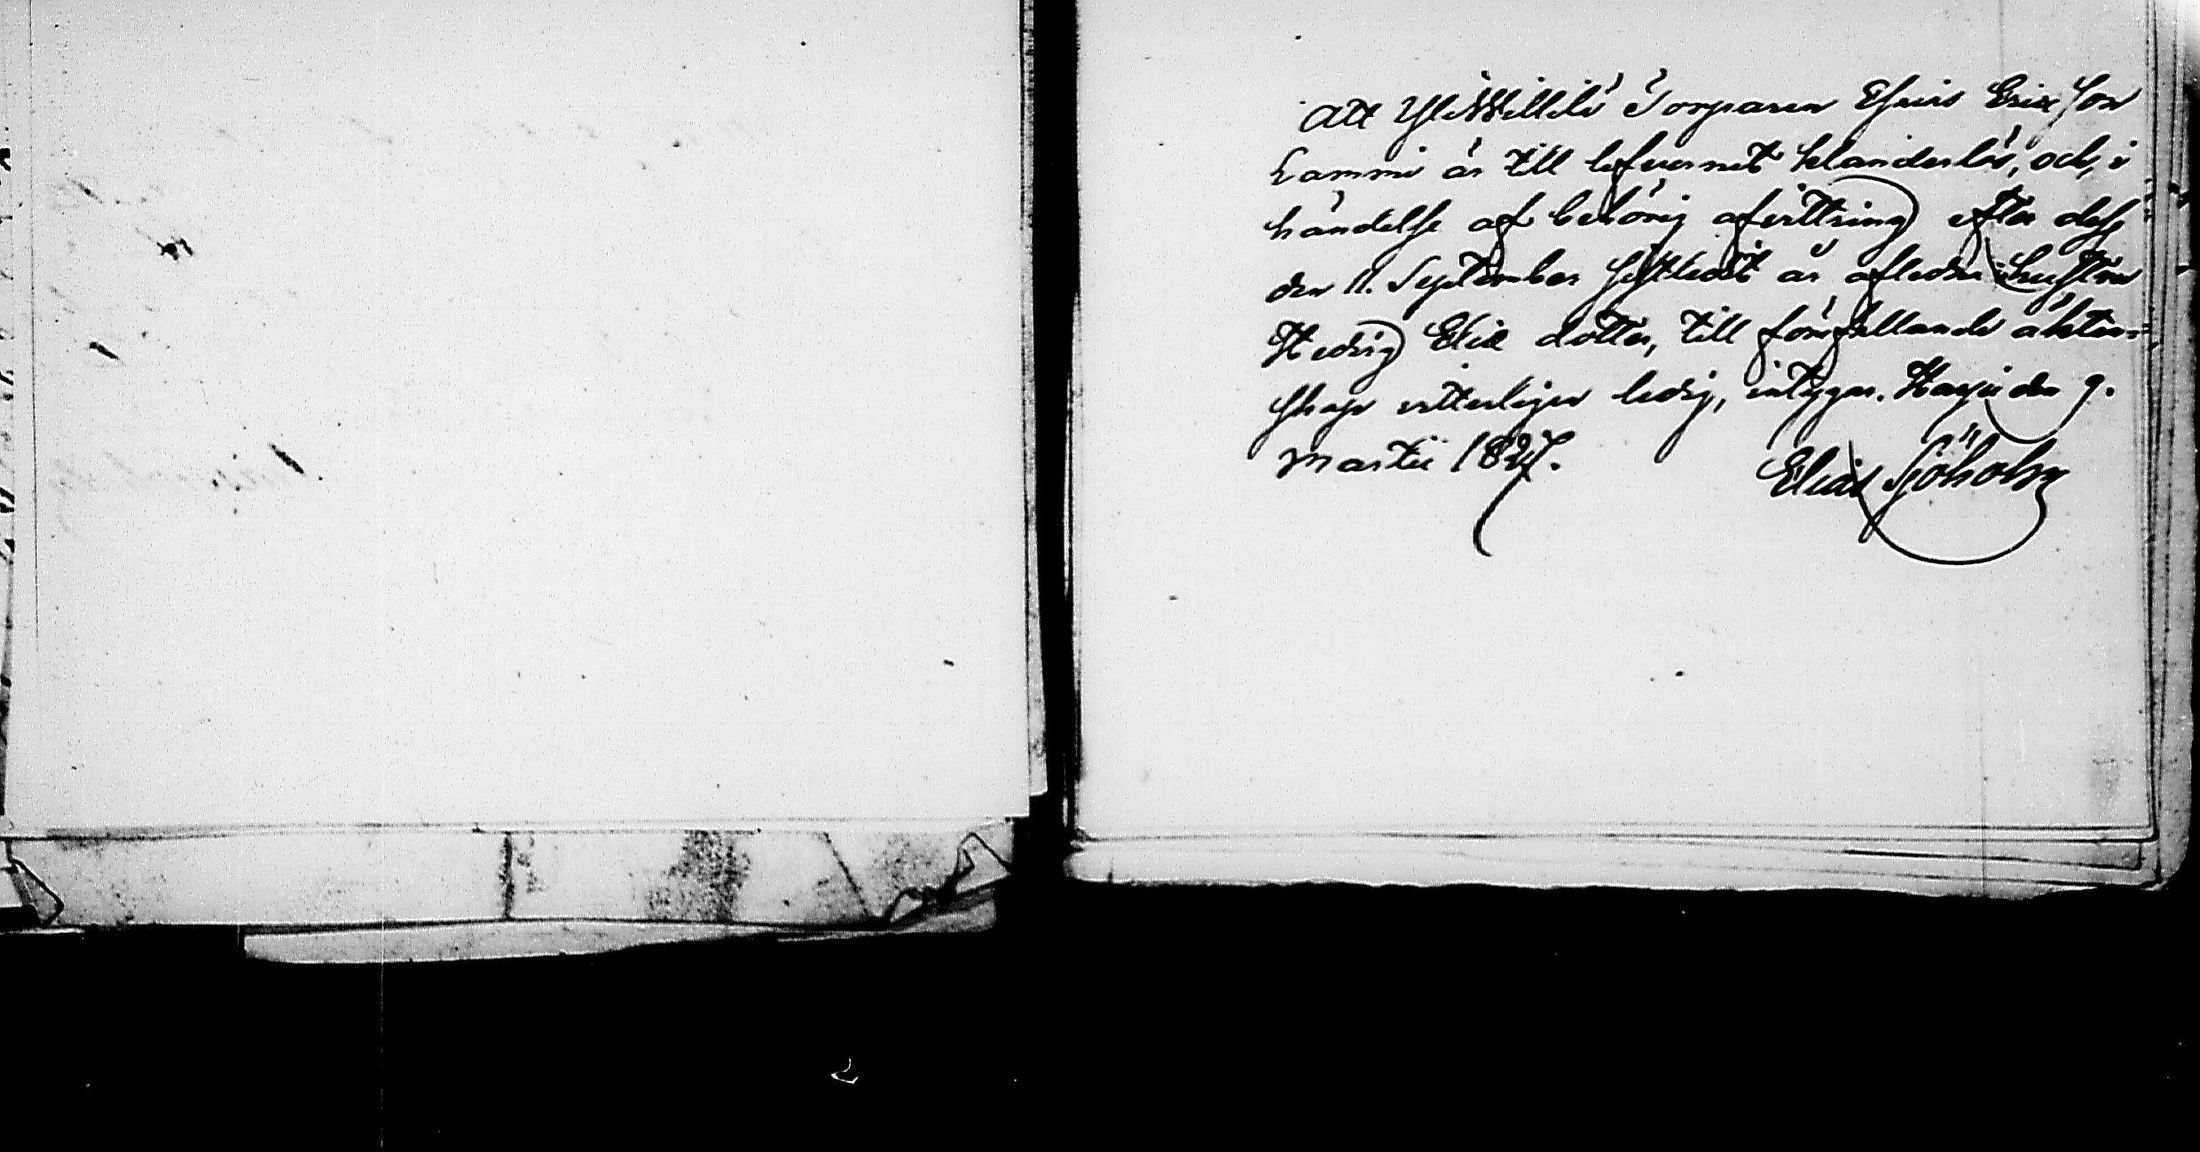 Att YliWillilä Torparen Esaias Ericsson
Lammi är till lefvernet klanderlös, och, i
händelse af behörig afvittring efter dess
den 11. September sistledit år afledna hustru
Hedvig Eliæ dotter, till förefallande äkten=
skap vitterligen ledig, intygar. Karju den 9.
Martii 1827.
Elias Sjöholm